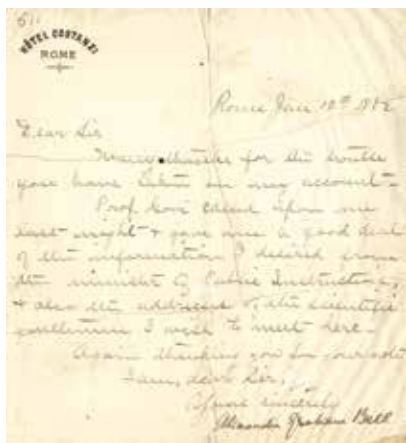 HÔTEL COSTANZI
ROME
Rome Jan 12th 1882
Dear Sir
Many thanks for the trouble
you have taken on my account -
Prof. Govi called upon me
last night & gave me a good deal
of the information I desired from
the minister of Public Instruction,
& also the address of the scientific
gentlemen I wish to meet here -
Again thanking you for your
I am, dear Sir,
Yours sincerely
Alexander Graham Bell